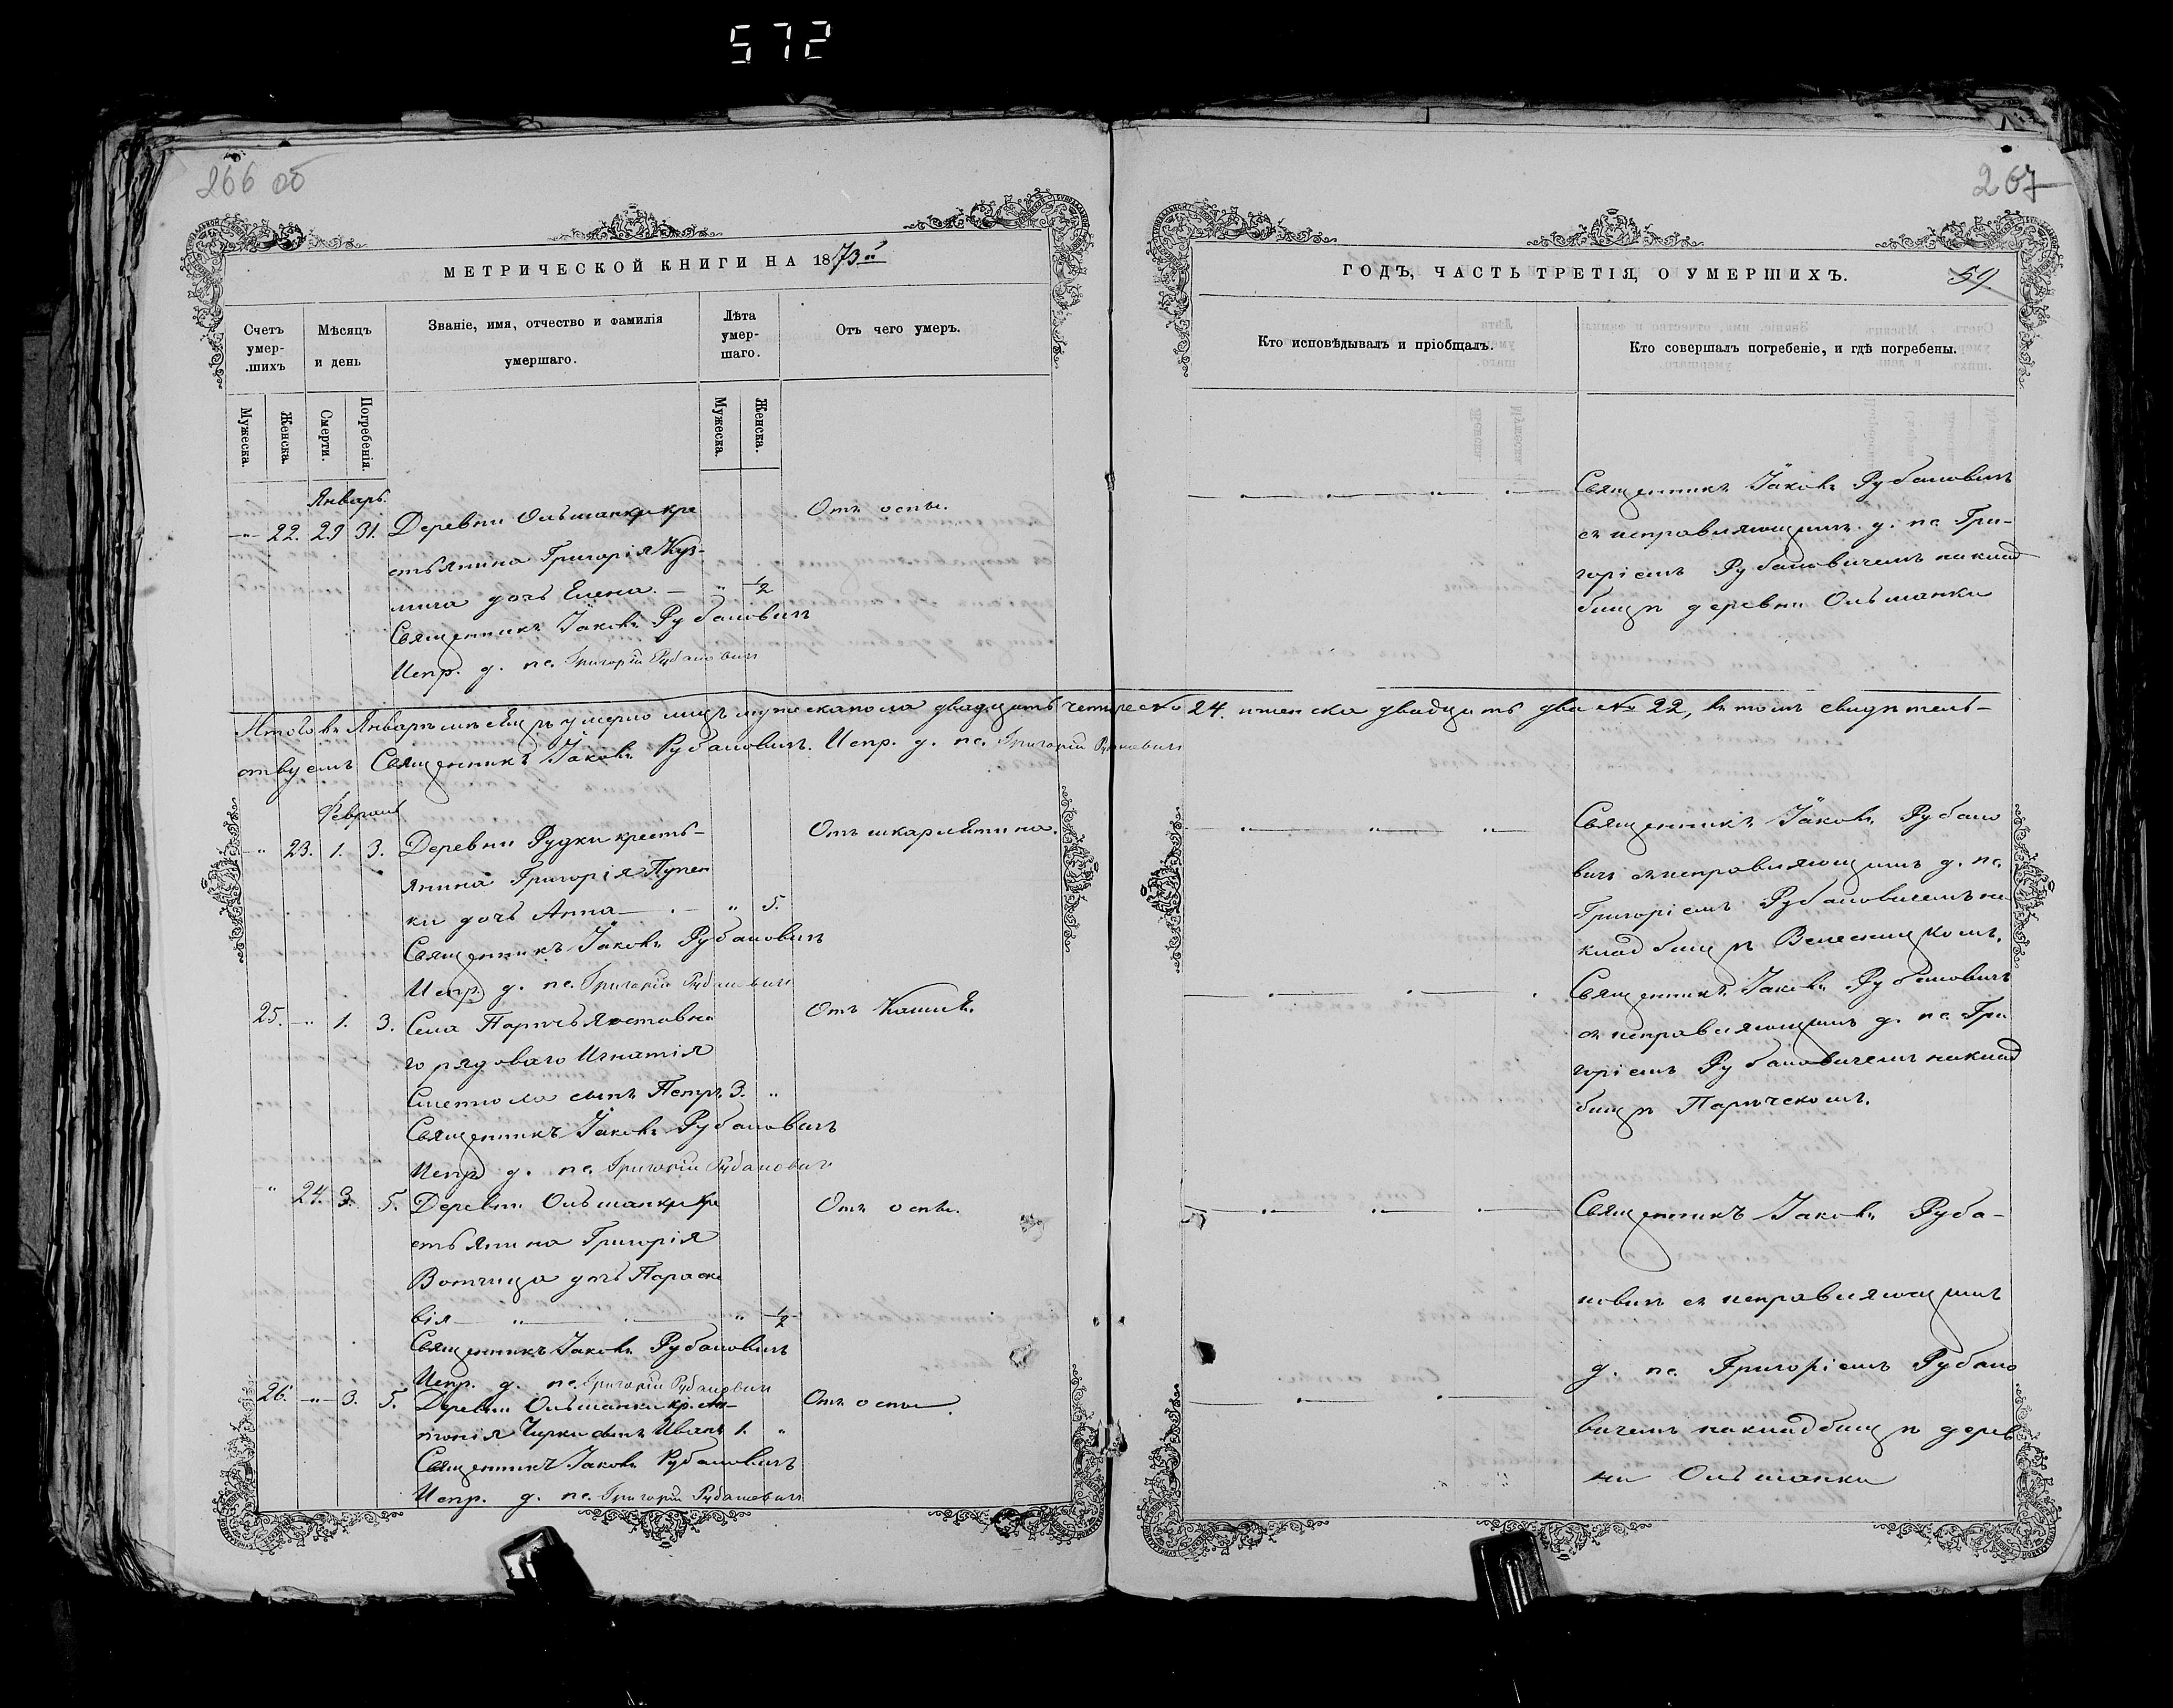 572
266 об
267
МЕТРИЧЕСКОЙ КНИГИ НА 1873й
ГОДЪ, ЧАСТЬ ТРЕТІЯ, О УМЕРШИХЪ.
59
Счетъ умер-.шихъ
Мѣсяцъ и день
Званіе, имя, отчество и фамилія умершаго.
Лѣта умер-шаго.
Отъ чего умеръ.
Кто исповѣдывалъ и пріобщалъ.
Кто совершалъ погребеніе, и гдѣ погребены.
Мужеска.
Женска.
Смерти.
Погребенія.
Мужеска.
Женска.
Январь.
22. 29 31. Деревни Ольшанки кре
Отъ оспы.
стьянина Григорія Куз-
мича дочь Елена. — " ½
Священникъ Іаковъ Рубановичъ
Испр. д. пс. Григорій Рубановичъ
Священникъ Іаковъ Рубановичъ
съ исправляющимъ д. пс. Гри-
горіемъ Рубановичемъ на клад
бищѣ деревни Ольшанки
Итого въ Январѣ мѣсяцѣ умерло лицъ мужеска пола двадцать четыре № 24. женска двадцать два № 22, въ томъ свидѣтель-
ствуемъ Священникъ Іаковъ Рубановичъ. Испр. д. пс. Григорій Рубановичъ
Февраль
" 23. 1. 3. Деревни Рудки кресть-
Отъ шкарлятина.
янина Григорія
ки дочь Анна — . — " 5.
Священникъ Іаковъ Рубановичъ
Испр. д. пс. Григорій Рубановичъ
Священникъ Іаковъ Рубано
вичъ съ исправляющимъ д. пс.
Григоріемъ Рубановичемъ на
кладбищѣ
25. — " 1. 3. Села Паричъ отставна
Отъ Кашля.
го рядоваго Игнатія
сынъ Петръ 3. "
Священникъ Іаковъ Рубановичъ
Испр. д. пс. Григорій Рубановичъ
Священникъ Іаковъ Рубановичъ
съ исправляющимъ д. пс. Гри
горіемъ Рубановичемъ на клад
бищѣ Паричскомъ.
" 24. 3. 5. Деревни Ольшанки кре
Отъ оспы.
стьянина Григорія
дочь Параске
вія — " — " ½
Священникъ Іаковъ Рубановичъ
Испр. д. пс. Григорій Рубановичъ
26. — " — 3. 5. Деревни Ольшанки кр. Ан-
Отъ оспы.
тонія Чирки сынъ Иванъ 1. "
Священникъ Іаковъ Рубановичъ
Испр. д. пс. Григорій Рубановичъ
Священникъ Іаковъ Руба-
новичъ съ исправляющимъ
д. пс. Григоріемъ Рубано
вичемъ на кладбищѣ дерев
ни Ольшанки